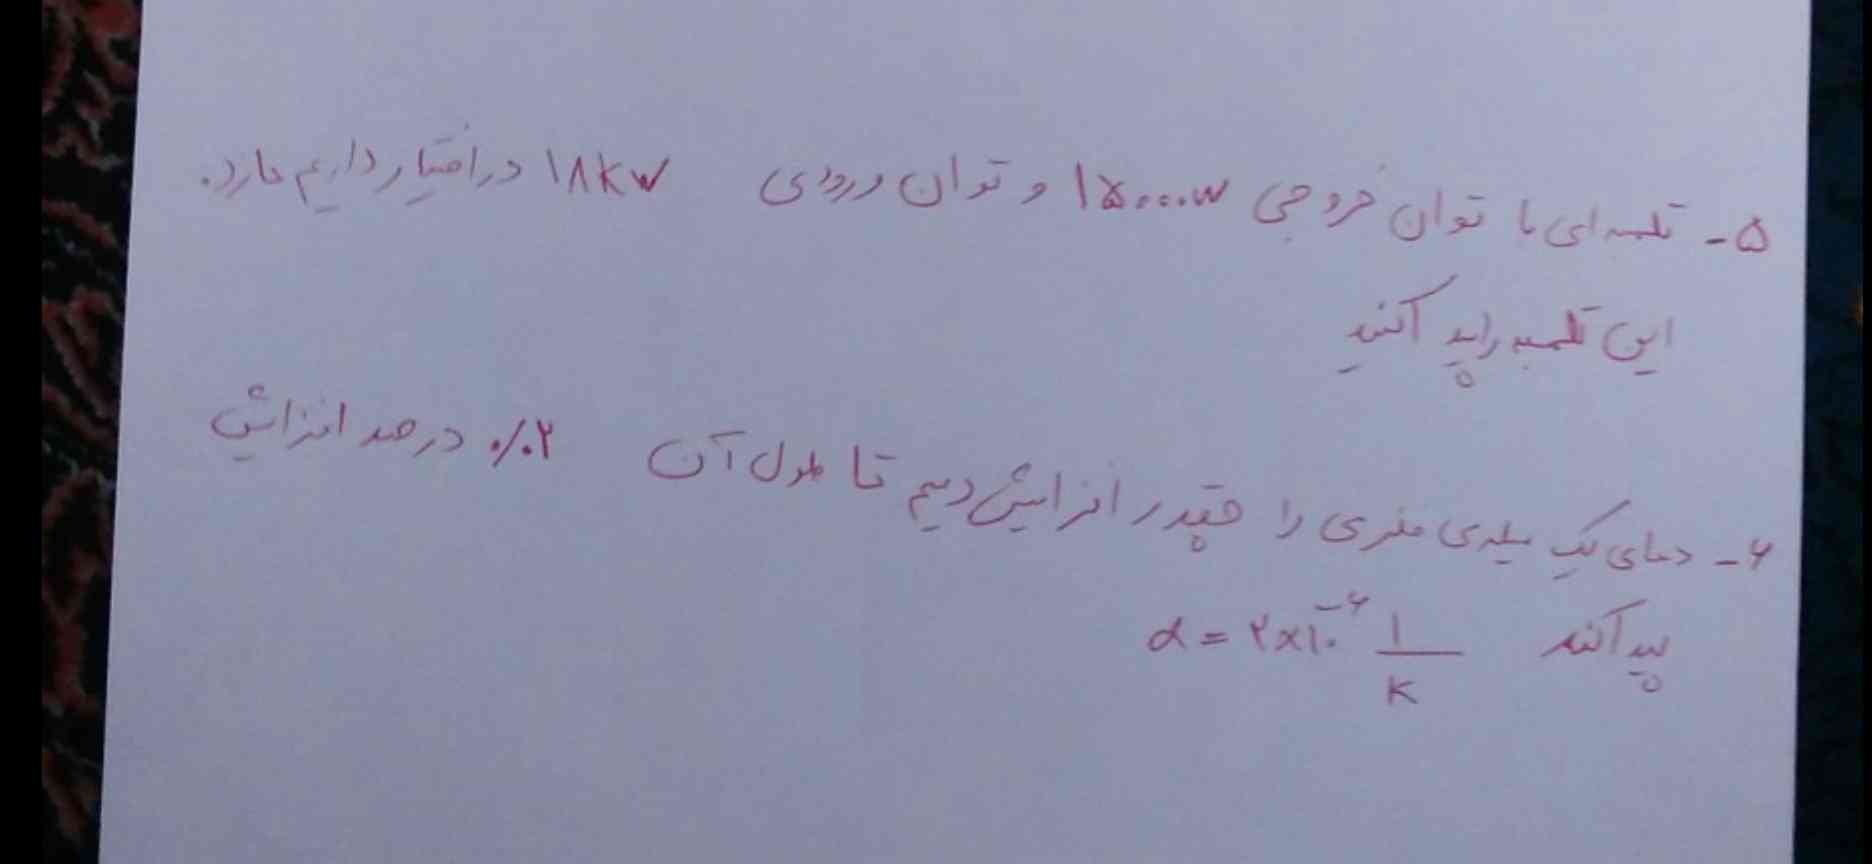 ۵- تلمبه ای با توان خروجی ۱۵۰۰۰w و توان ورودی ۱۸kw در اختیار داریم بازده
این تلمبه را پیدا کنید
۶- دمای یک میله ی فلزی را چقدر افزایش دهیم تا طول آن ۰/۰۲ درصد افزایش
پیدا کند α = ۲×۱۰^-۶ ۱/K